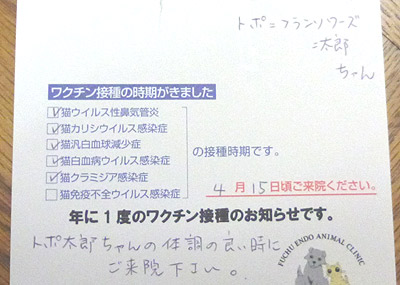 トポ=フランソワーズ
二太郎
ちゃん
ワクチン接種の時期がきました
☑猫ウイルス性鼻気管炎
☑猫カリシウイルス感染症
☑猫汎白血球減少症
☑猫白血病ウイルス感染症
☑猫クラミジア感染症
□猫免疫不全ウイルス感染症
の接種時期です。
4月15日頃ご来院ください。
年に1度のワクチン接種のお知らせです。
トポ太郎ちゃんの体調の良い時に
ご来院下さい。
FUCHU ENDO ANIMAL CLINIC